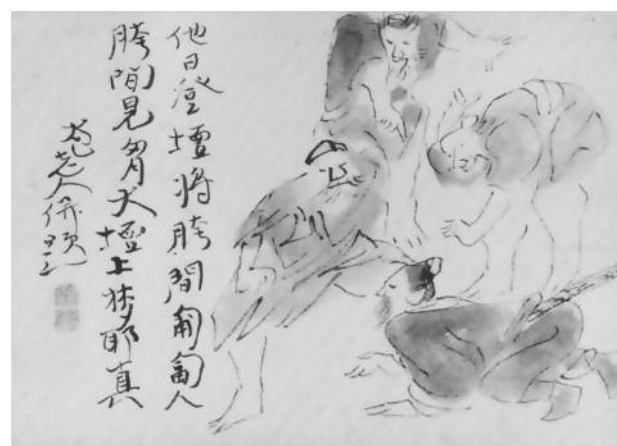 他日登壇将胯間匍匐人
胯間見大壇上梦耶真
老人併題